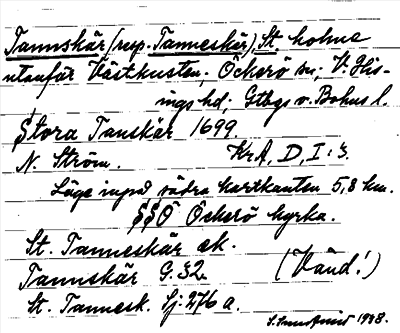 Tannskär (resp. Tanneskär), St. holme
utanför Västkusten, Öckerö sn, V. His-
ings hd; Gtbgs o. Bohus l.
Stora Tanskär 1699.
N. Ström. KrA, D, I:3.
Läge invid södra kartkanten 5,8 km.
SSÖ Öckerö kyrka.
St. Tanneskär ek.
Tannskär G. 32 (Vänd!)
St. Tannesk. Sj: 276 a.
1938.